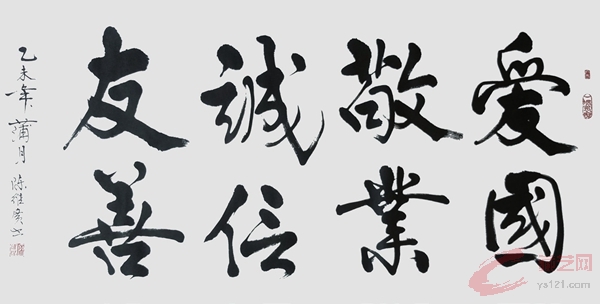 爱國
敬業
誠信
友善
乙未年蒲月
ys121.com